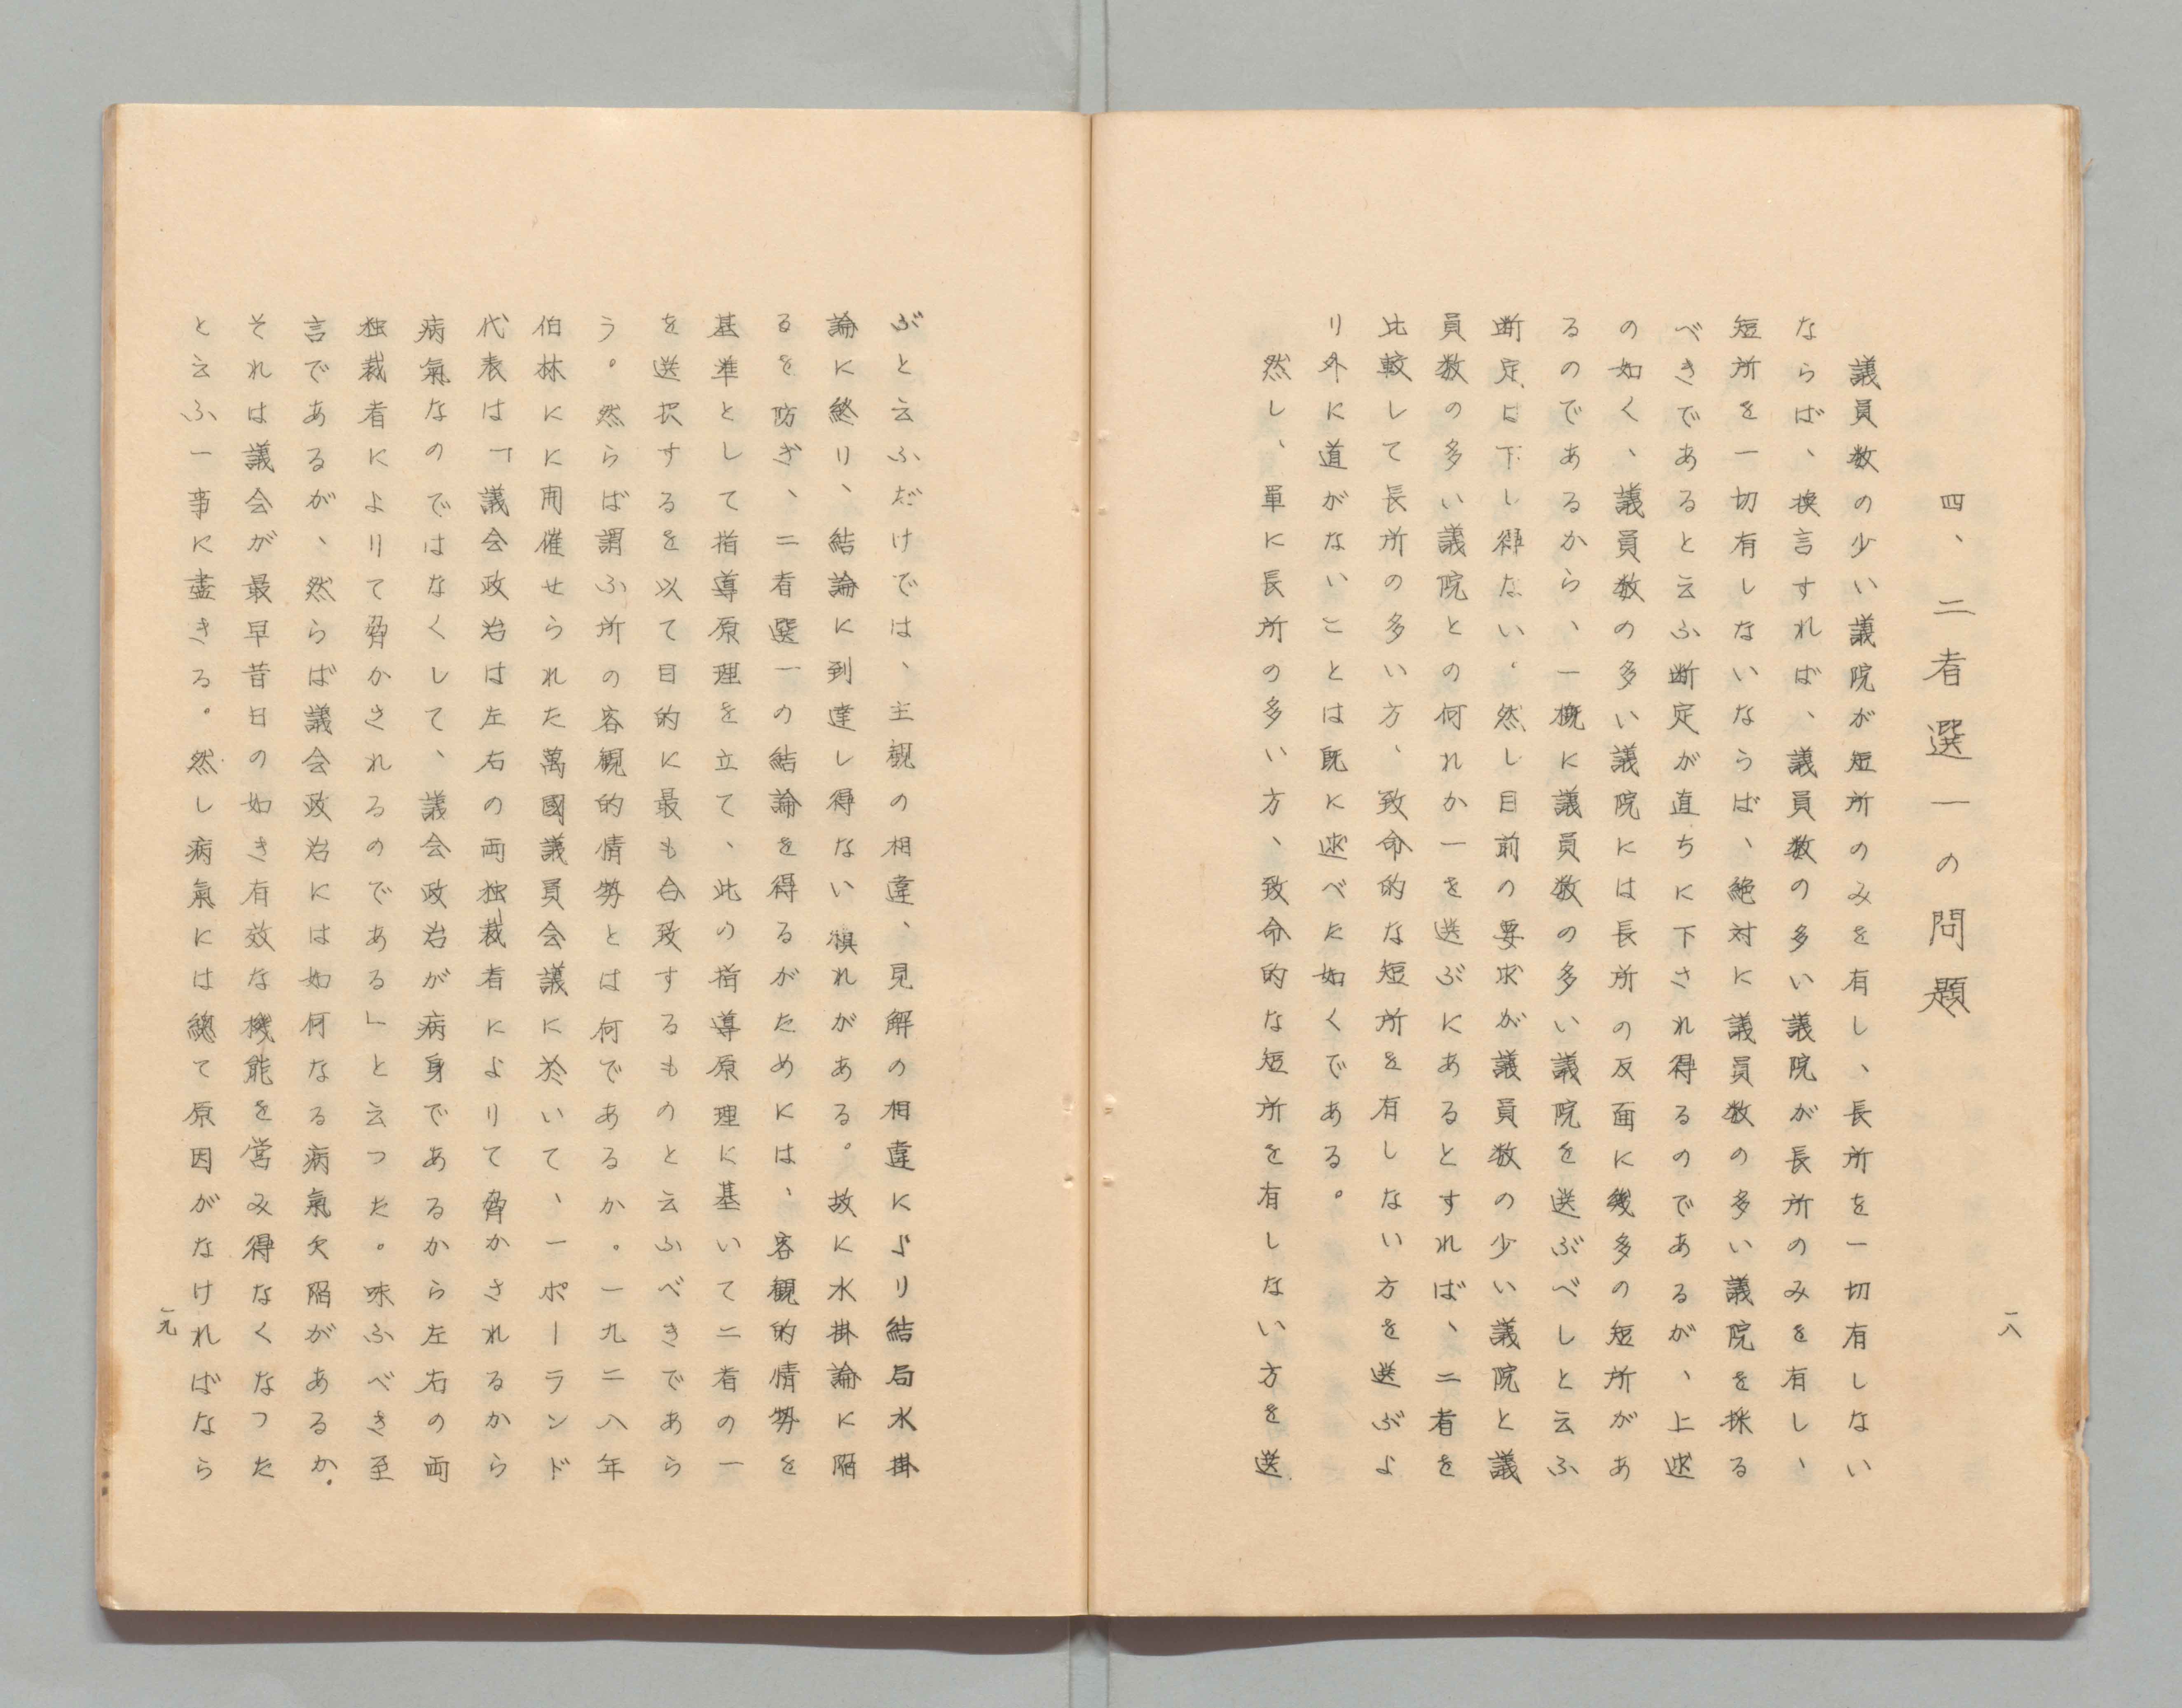 四、二者選一の問題
議員数の少い議院が短所のみを有し、長所を一切有しない
ならば、換言すれば、議員数の多い議院が長所のみを有し、
短所を一切有しないならば、絶対に議員数の多い議院を採る
べきであると云ふ断定が直ちに下され得るのであるが、上述
の如く、議員数の多い議院には長所の反面に幾多の短所があ
るのであるから、一概に議員数の多い議院を送ぶべしと云ふ
断定は下し得ない。然し目前の要求が議員数の少い議院と議
員数の多い議院との何れか一を送ぶにあるとすれば、二者を
比較して長所の多い方、致命的な短所を有しない方を選ぶよ
り外に道がないことは既に述べた如くである。
然し、単に長所の多い方、致命的な短所を有しない方を送
一八
ぶと云ふだけでは、主観の相違、見解の相違により結局水掛
論に終り、結論に到達し得ない惧れがある。故に水掛論に陥
るを防ぎ、二者選一の結論を得るがためには、客観的情勢を
基準として指導原理を立て、此の指導原理に基いて二者の一
を送択するを以て目的に最も合致するものと云ふべきであら
う。然らば謂ふ所の客観的情勢とは何であるか。一九二八年
伯林に開催せられた萬國議員会議に於いて、一ポーランド
代表は「議会政治は左右の両独裁者によりて脅かされるから
病氣なのではなくして、議会政治が病身であるから左右の両
独裁者によりて脅かされるのである」と云つた。味ふべき至
言であるが、然らば議会政治には如何なる病氣欠陥があるか。
それは議会が最早昔日の如き有效な機能を営み得なくなつた
と云ふ一事に盡きる。然し病氣には總て原因がなければなら
一九